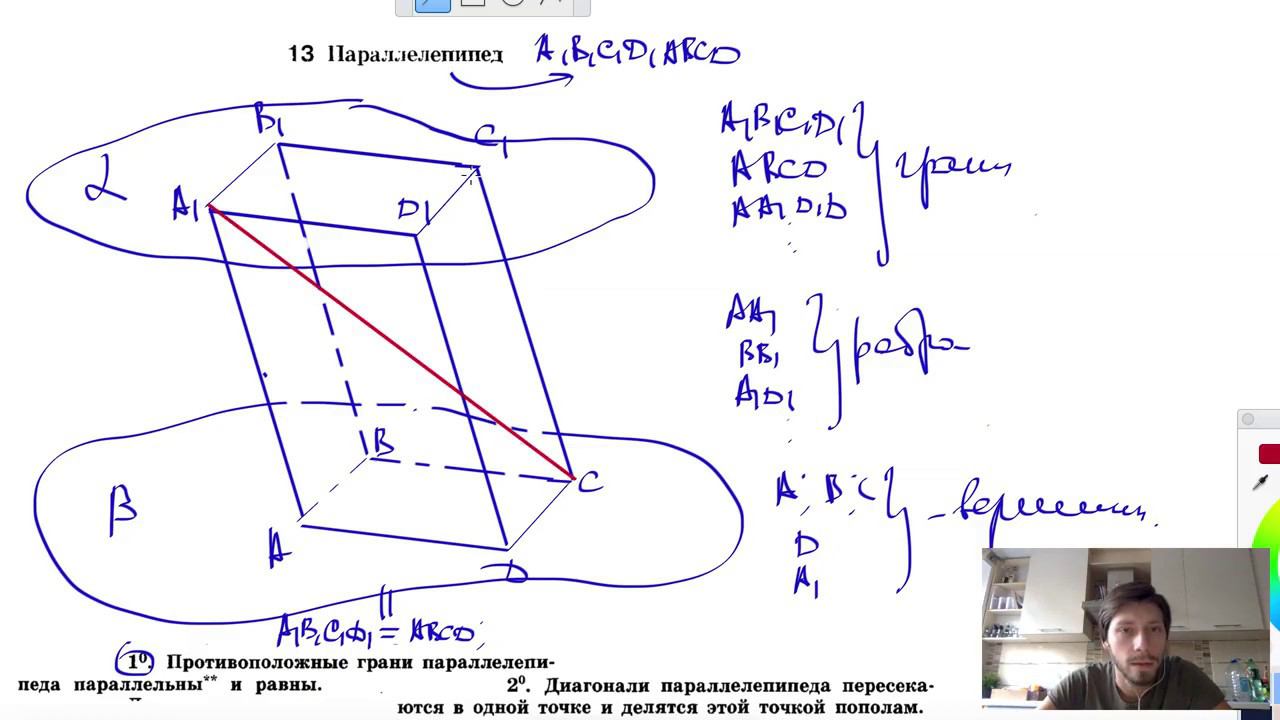 13 Параллелепипед A₁B₁C₁D₁ABCD
B₁
C₁
α
A₁
D₁
B
C
β
A
D
A₁B₁C₁D₁
ABCD
AA₁D₁D
грани
AA₁
BB₁
A₁D₁
ребра
A; B; C
D
A₁
- вершины.
||
A₁B₁C₁D₁ = ABCD;
1⁰. Противоположные грани параллелепи-
педа параллельны** и равны.
2⁰. Диагонали параллелепипеда пересека-
ются в одной точке и делятся этой точкой пополам.